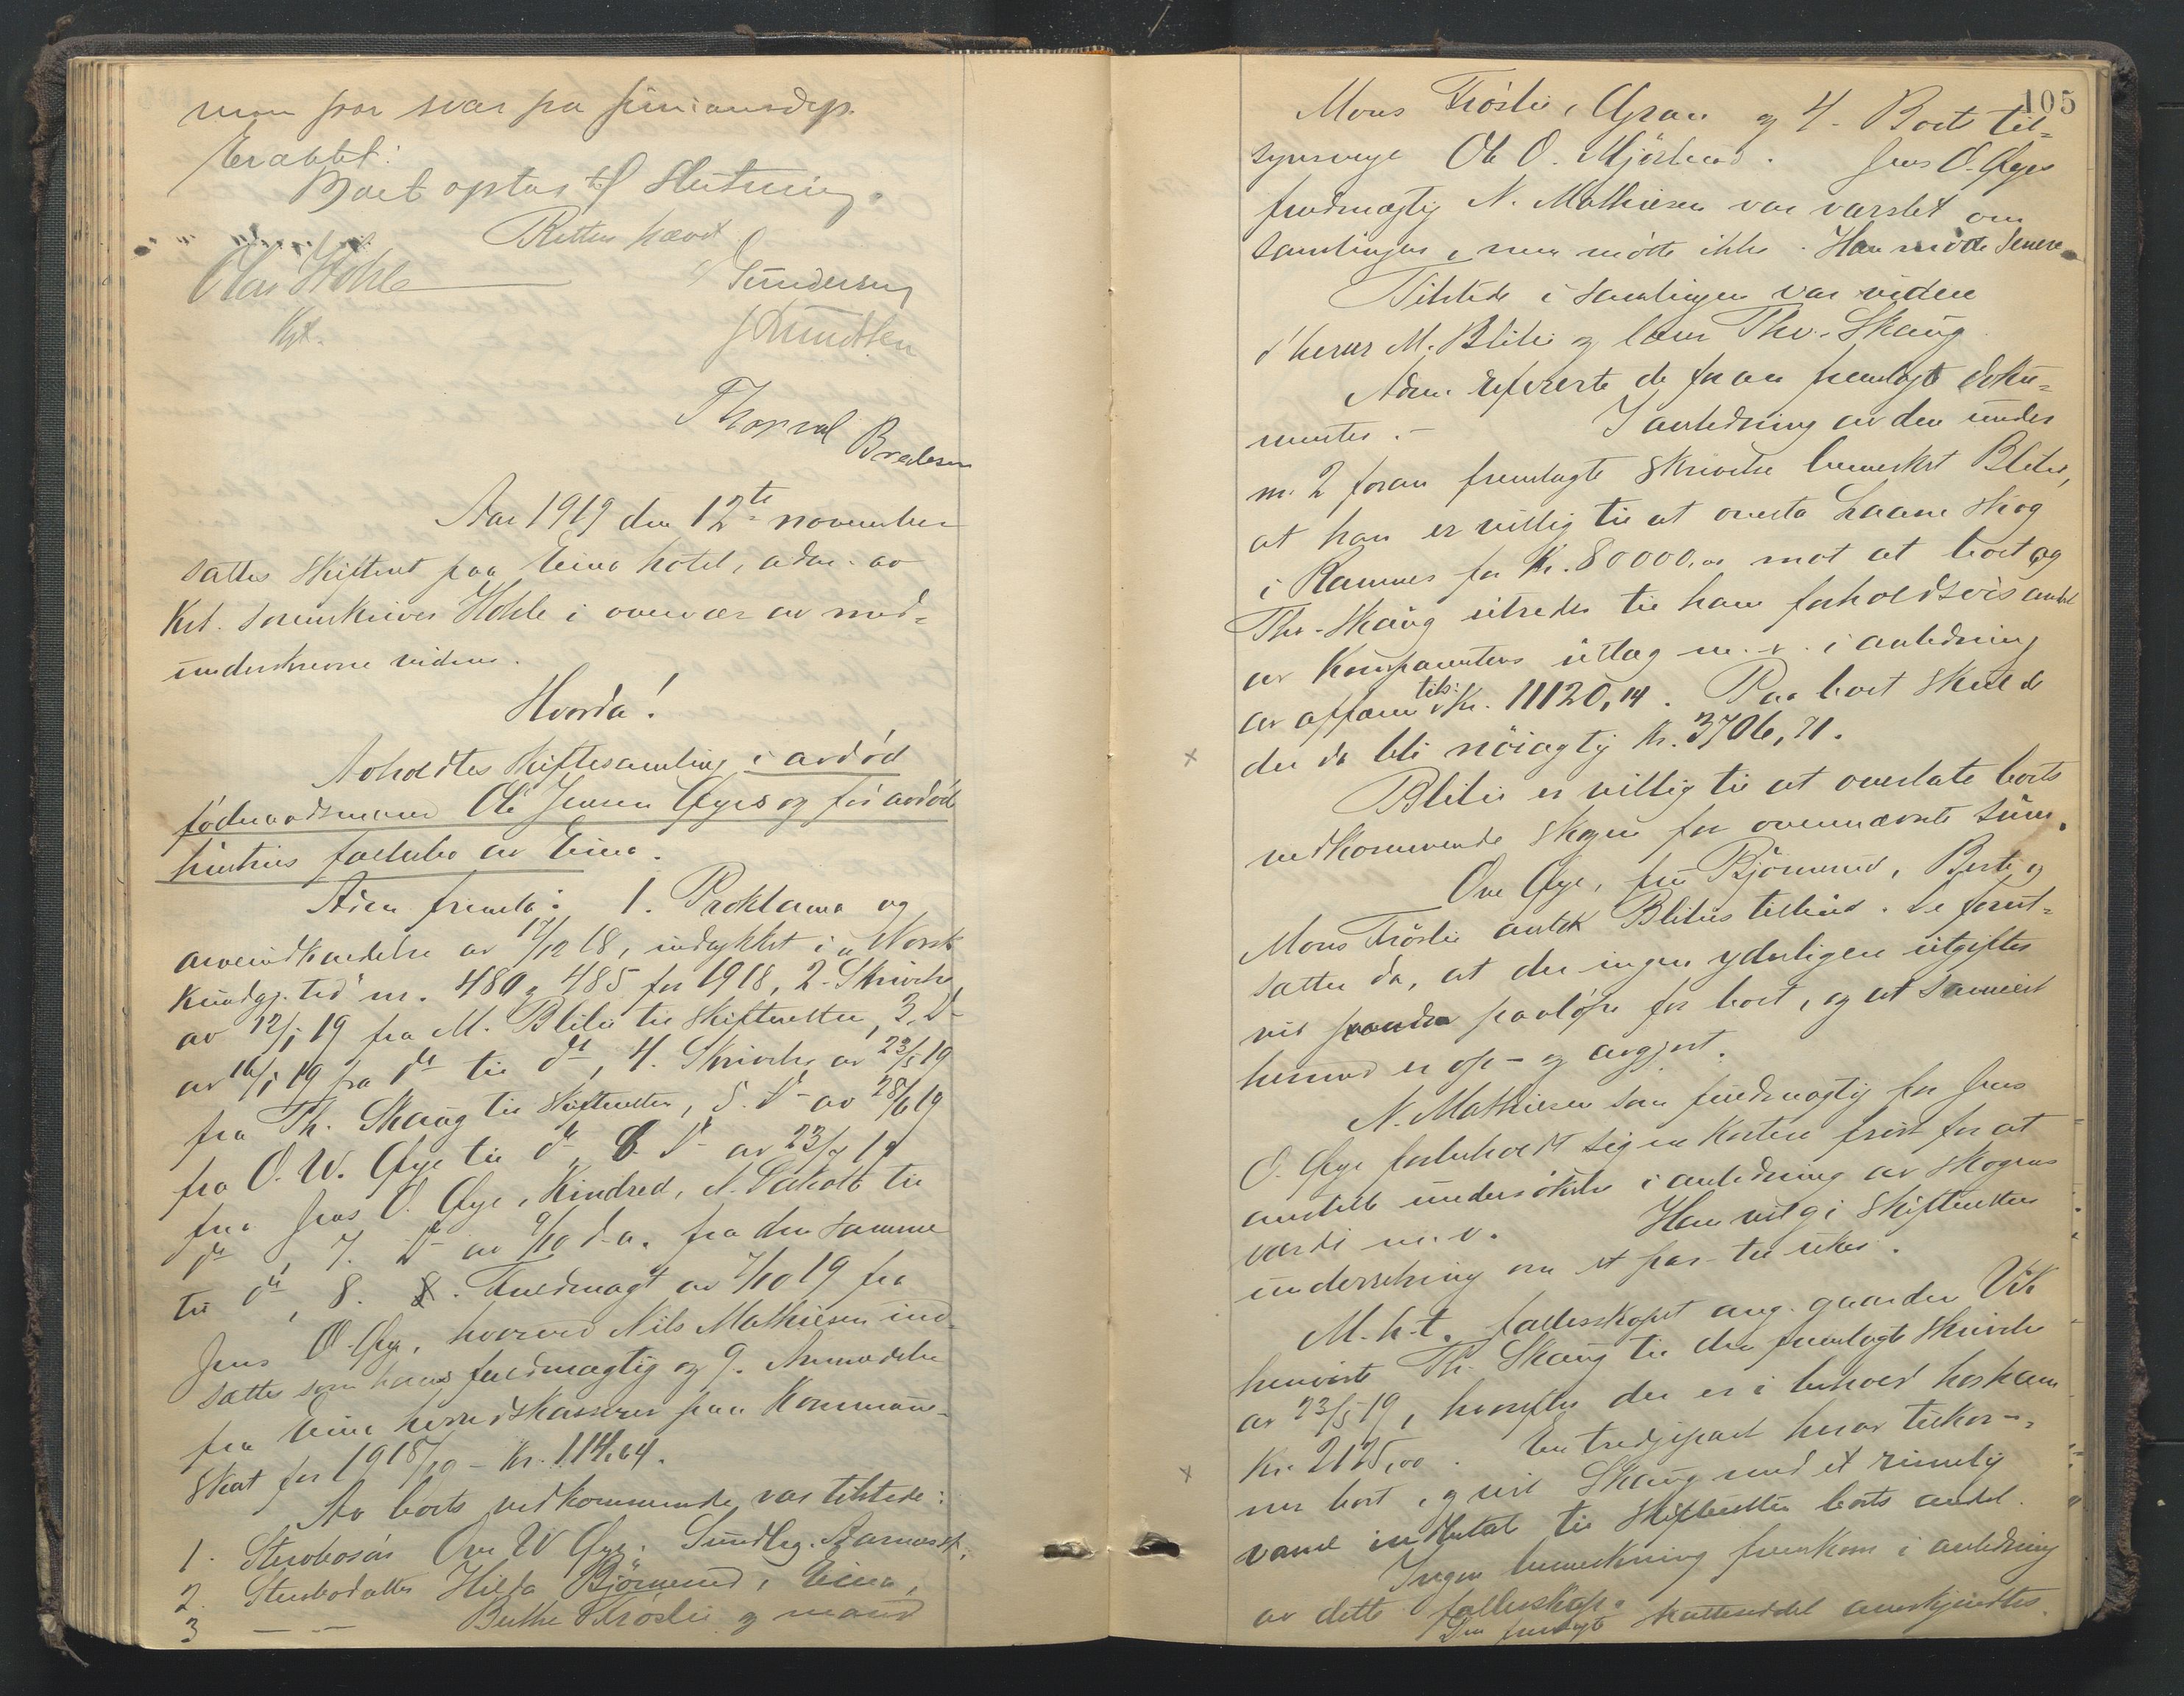 man faar svar fra finansdep.
Eragtet:
Boet optas til slutning.
Retten hævet
Olai Hohle
Kst.
Gundersen
J Knudsen
Thorval Bredesen
Aar 1919 den 12te november
sattes skifteret paa Eina hotel, adm. av
Kst. sorenskriver Hohle i overvær av med-
underskrevne vidner.
Hvorda!
Avholdtes skiftesamling i avdød
føderaadsmand Ole Jensen Øyes og før avdød
hustrus fællesbo av Eina.
Adm. fremla: 1. Proklama og
arveindkaldelse av 17/12 18, indrykket i „Norsk
Kundgj. tid" nr. 480 og 485 for 1918, 2. Skrivelse
av 12/1 19 fra M. Blilie til skifteretten, 3. Do
av 16/1 19 fra do til do, 4. Skrivelse av 23/5 19
fra Th. Skaug til skifteretten, 5. Do av 28/6 19
fra O. W. Øye til do, 6. Do av 23/7 19
fra Jens O. Øye, Kindred, N. Dakota til
do, 7. Do av 9/10 d.a. fra den samme
til do, 8. Fuldmagt av 7/10 19 fra
Jens O. Øye, hvorved Nils Mathiesen ind-
sattes som hans fuldmægtig og 9. Anmeldelse
fra Eina herredskasserer paa Kommune-
skat for 1918/19 - Kr. 114,64.
Av boets vedkommende var tilstede:
1. Stervbosøn Ove W Øye,
2. Stervbodatter Hilda Bjørnerud, Eina,
3 — — Berthe Frøslie og mand
105
Mons Frøslie, Gran og 4. Boets til-
synsverge Ole O. Mjørlund. Jens O. Øyes
fuldmægtig N. Mathiesen var varslet om
samlingen, men møtte ikke. Han møtte senere
Tilstede i samlingen var videre
d'herrer M. Blilie og Thv. Skaug.
Adm. refererte de foran fremlagte doku-
menter. - I anledning av den under
nr. 2 foran fremlagte skrivelse bemerket Blilie,
at han er villig til at overta Laane skog
i Ramnes for Kr. 80000,00 mot at boet og
Thv. Skaug utreder til ham forholdsvis andel
av kompaniets utlæg m. v. i anledning
av affæren tils: Kr. 11120,14. Paa boet skulde
der da bli nøiagtig Kr. 3706,71.
Blilie er villig til at overlate boets
vedkommende skogen for overnævnte sum.
Ove Øye, fru Bjørnerud, Berte og
Mons Frøslie antok Blilies tilbud. De forut-
sætter da, at der ingen yderligere utgifter
vil paaløpe for boet, og at samiet
hermed er op- og avgjort.
N. Mathiesen som fuldmægtig for Jens
O. Øye forbeholdt sig en kortere frist for at
anstille undersøkelse i anledning av skogens
værdi m. v. Han vil gi skifteretten
underretning om et par - tre uker.
M. h. t. fællesskapet ang. gaarden Vik
henviste Th. Skaug til den fremlagte skrivelse
av 23/5 19, hvorefter der er i behold hos ham
Kr. 2125,00. En tredjepart herav tilkom-
mer boet, og vil Skaug med et rimelig
varsel indbetale til skifteretten boets andel.
Ingen bemerkning fremkom i anledning
av dette fællesskap.
Den fremlagte skatteseddel anerkjendtes.